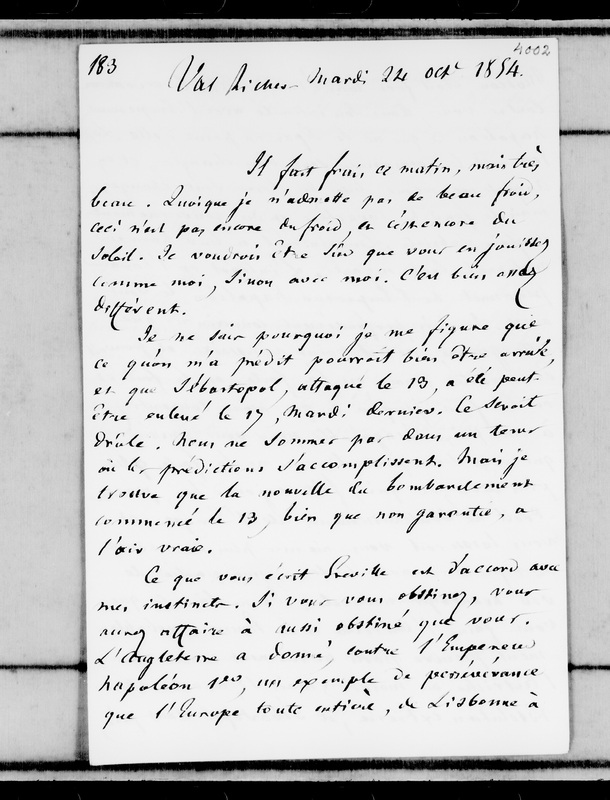 4002
183
Val Richer Mardi 24 Octe 1854.
Il fait frais ce matin, mais très
beau. Quoique je n'admette pas de beau froid,
ceci n'est pas encore du froid, et c'est encore du
Soleil. Je voudrois être sûr que vous en jouissez
comme moi, sinon avec moi. C'est bien assez
différent.
Je ne sais pourquoi je me figure que
ce qu'on m'a prédit pourroit bien être arrivé,
et que Sébastopol, attaqué le 13, a été peut
être enlevé le 17, Mardi dernier. Ce seroit
drôle. Nous ne sommes pas dans un tems
où les prédictions s'accomplissent. Mais je
trouve que la nouvelle du bombardement
commencé le 13, bien que non garantie, a
l'air vraie.
Ce que vous écrit Greville est d'accord avec
mes instincts. Si vous vous obstinez, vous
aurez affaire à aussi obstiné que vous.
L'Angleterre a donné, contre l'Empereur
Napoléon 1er, un exemple de persévérance
que l'Europe toute entière, de Lisbonne à